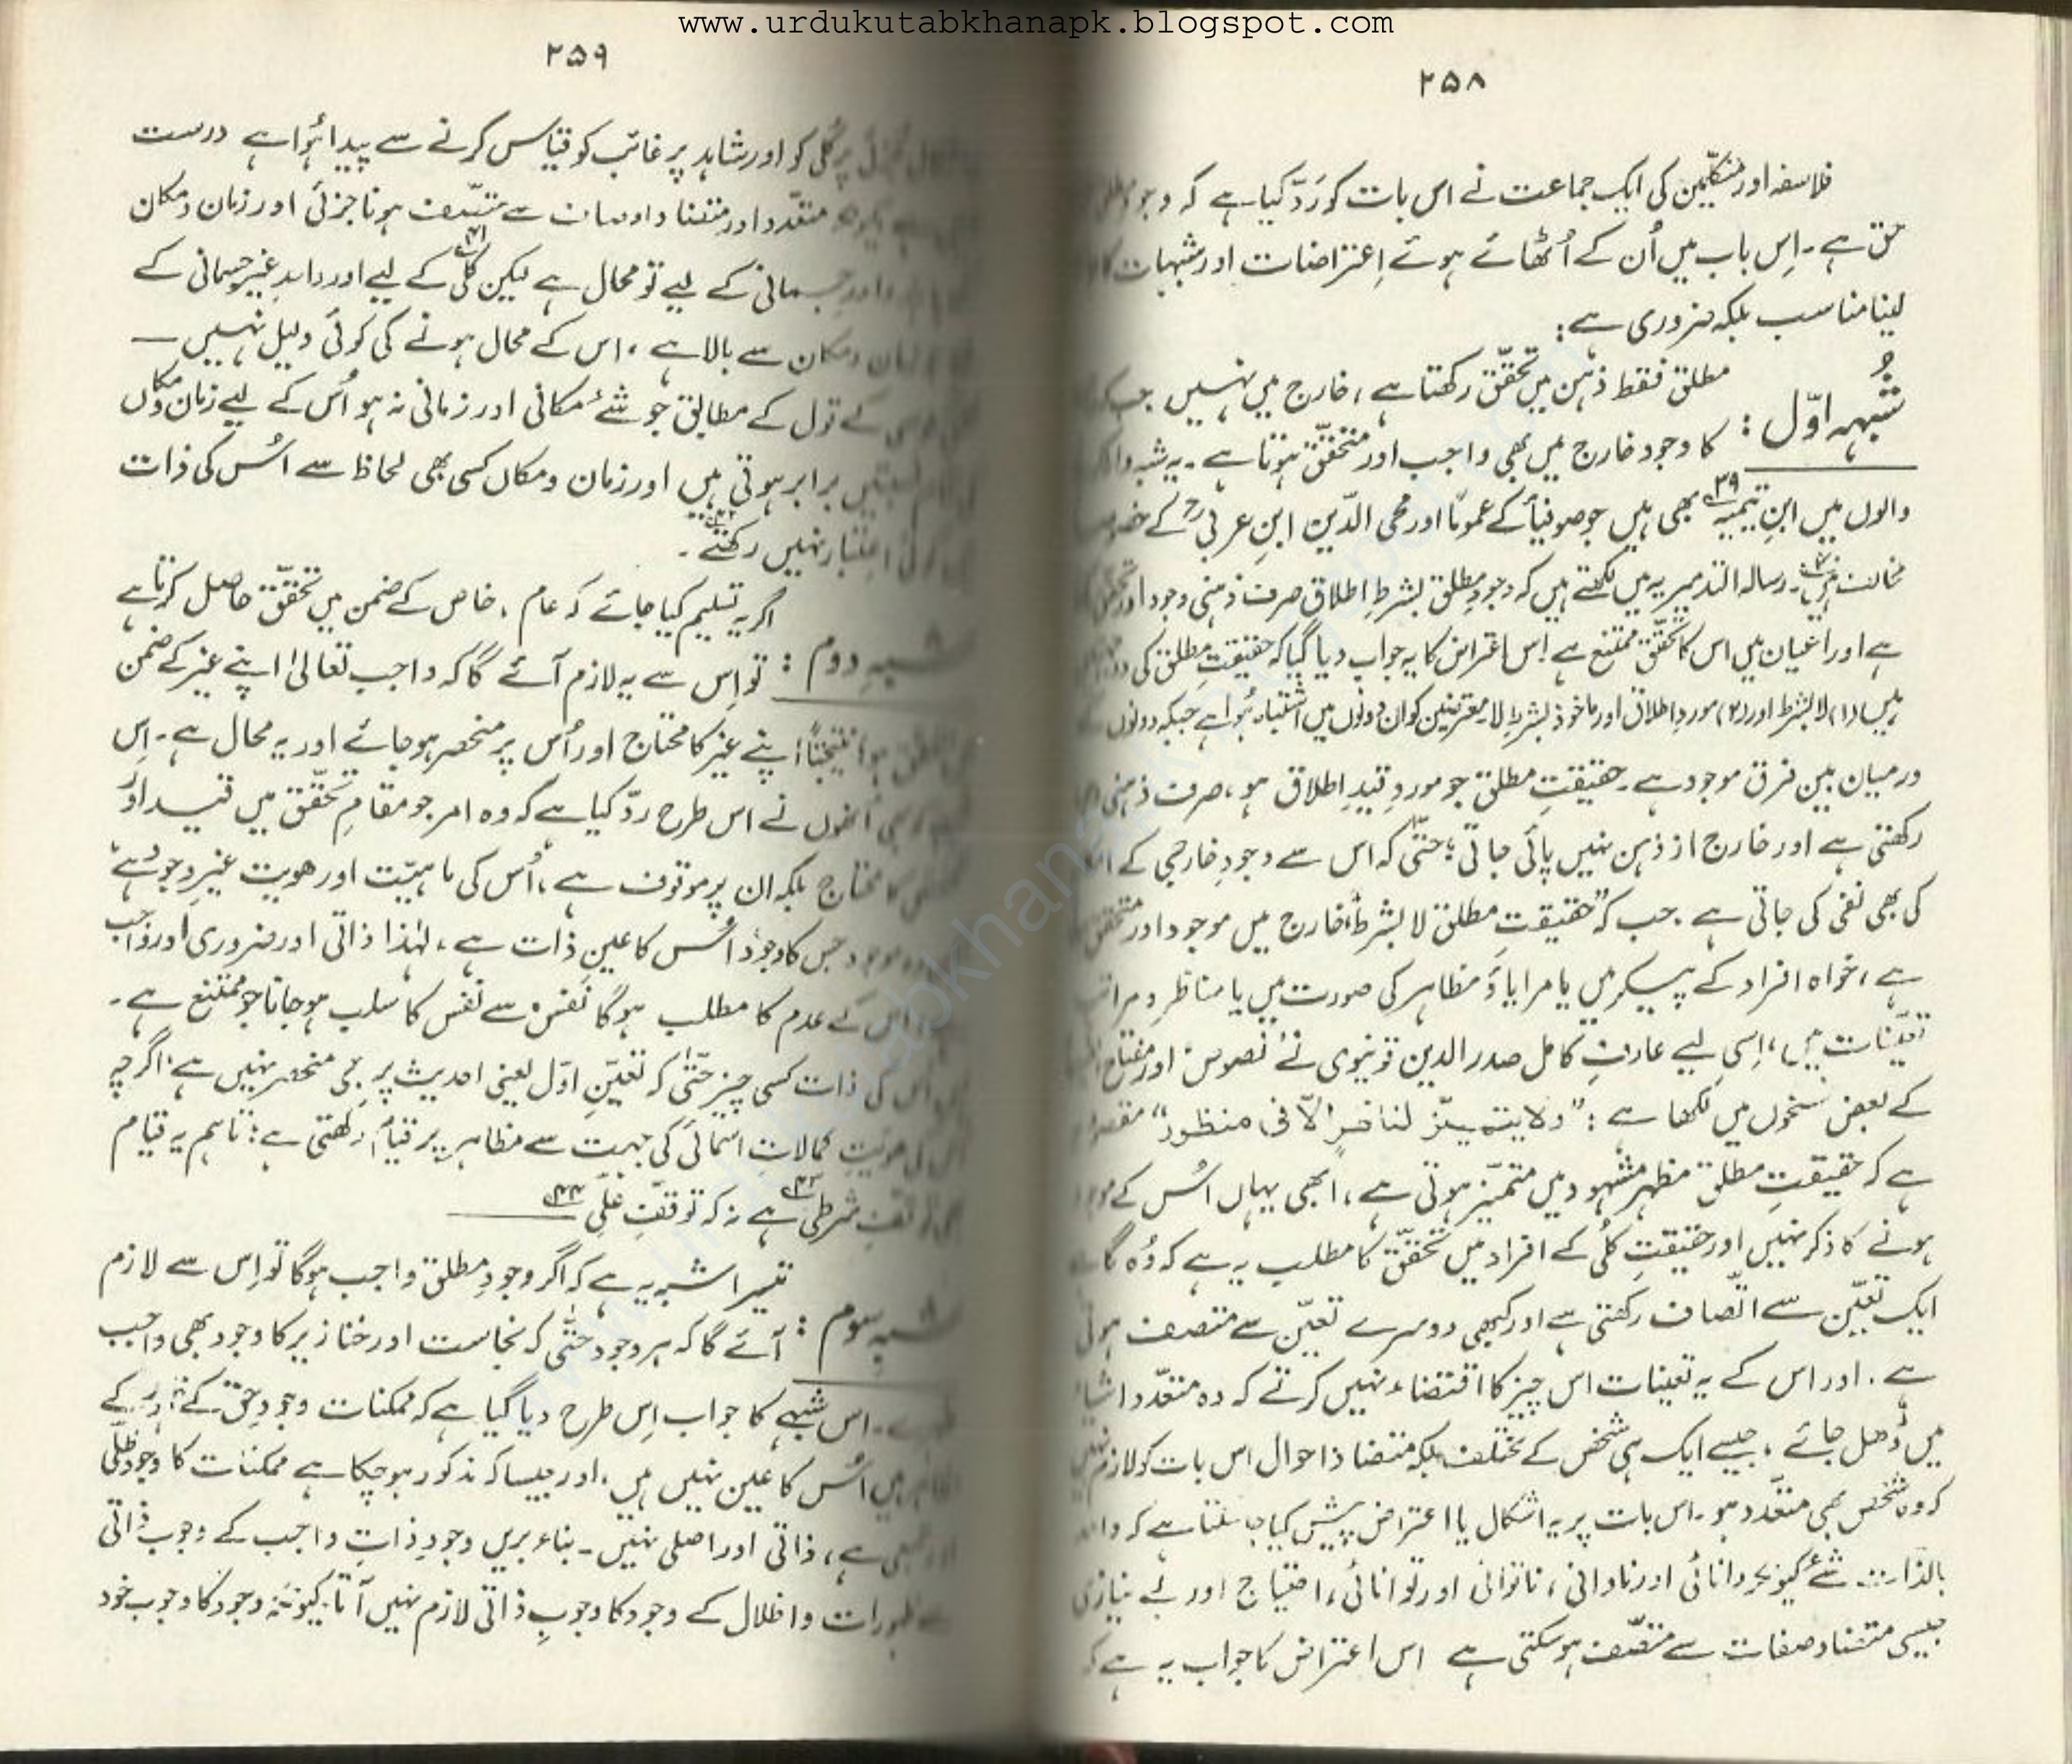 www.urdukutabkhanapk.blogspot.com
۲۵۸
فلاسفہ اور متکلّمین کی ایک جماعت نے اس بات کو رَدّ کیا ہے کہ وجودِ مطلق
حق ہے۔ اِس باب میں اُن کے اُٹھائے ہوئے اِعتراضات اور شبہات کا
لینا مناسب بلکہ ضروری ہے:
شُبہہ اوّل :
مطلق فقط ذہن میں تحقّق رکھتا ہے، خارج میں نہیں جب کہ
کا وجود خارج میں بھی واجب اور متحقّق ہوتا ہے۔ یہ شبہ وارد
والوں میں ابنِ تیمیہ۳۹ بھی ہیں جو صوفیأ کے عموماً اور محی الدّین ابنِ عربیؒ کے
مخالف ہیں۔ رسالہ التدمیریہ میں لکھتے ہیں کہ وجودِ مطلق بشرطِ اطلاق صرف ذہنی وجود اور تحقق
ہے اور اعیان میں اس کا تحقّق ممتنع ہے۔ اِس اعتراض کا یہ جواب دیا گیا کہ حقیقتِ مطلق کی دو
ہیں (۱) لابشرط اور (۲) موردِ اطلاق اور ماخوذ بشرطِ لا۔ معترضین کو ان دونوں میں اشتباہ ہُوا ہے جبکہ دونوں
درمیان بین فرق موجود ہے۔ حقیقتِ مطلق جو موردِ قیدِ اطلاق ہو، صرف ذہنی
رکھتی ہے اور خارج از ذہن نہیں پائی جاتی؛ حتّٰی کہ اس سے وجودِ خارجی کے
کی بھی نفی کی جاتی ہے۔ جب کہ "حقیقتِ مطلق لابشرط" خارج میں موجود اور متحقق
ہے، خواہ افراد کے پیکر میں یا مرایا وَ مظاہر کی صورت میں یا مناظر و مراتب
تعیّنات میں، اِسی لیے عارفِ کامل صدر الدین قونیوی نے نصوص اور مفتاح
کے بعض نسخوں میں لکھا ہے : "ولایتمیّز لناظرٍ الّا فی منظور" مقصود
ہے کہ حقیقتِ مطلق مظہرِ مشہود میں متمیّز ہوتی ہے، ابھی یہاں اُس کے موجود
ہونے کا ذکر نہیں اور حقیقتِ کلّی کے افراد میں تحقّق کا مطلب یہ ہے کہ وُہ گاہے
ایک تعیّن سے اتّصاف رکھتی ہے اور کبھی دوسرے تعیّن سے متّصف ہوتی
ہے۔ اور اس کے یہ تعینات اس چیز کا اقتضاء نہیں کرتے کہ وہ متعدّد اشیاء
میں ڈھل جائے، جیسے ایک ہی شخص کے مختلف بلکہ متضاد احوال اس بات کو لازم نہیں
کہ وہ شخص بھی متعدّد ہو۔ اس بات پر یہ اشکال یا اعتراض پیش کیا جا سکتا ہے کہ واحد
بالذات شئے کیونکر دانائی اور نادانی، ناتوانی اور توانائی، احتیاج اور بے نیازی
جیسی متضاد صفات سے متّصف ہو سکتی ہے اس اعتراض کا جواب یہ ہے کہ
۲۵۹
پر کُلّی کو اور شاہد پر غائب کو قیاس کرنے سے پیدا ہُوا ہے درست
متعدّد اور متضاد اوصاف سے متّصف ہونا جزئی اور زمان و مکان
اور جسمانی کے لیے تو محال ہے لیکن کُلّی۴۱ کے لیے اور واحدِ غیر جسمانی کے
زمان و مکان سے بالا ہے، اس کے محال ہونے کی کوئی دلیل نہیں ۔
کے قول کے مطابق جو شئے مکانی اور زمانی نہ ہو اُس کے لیے زمان و مکاں
نسبتیں برابر ہوتی ہیں اور زمان و مکاں کسی بھی لحاظ سے اُس کی ذات
اعتبار نہیں رکھتے۴۲۔
شبہِ دوم :
اگر یہ تسلیم کیا جائے کہ عام، خاص کے ضمن میں تحقّق حاصل کرتا ہے
تو اِس سے یہ لازم آئے گا کہ واجب تعالیٰ اپنے غیر کے ضمن
ہو نتیجتاً اپنے غیر کا محتاج اور اُس پر منحصر ہو جائے اور یہ محال ہے۔ اِس
اُنھوں نے اس طرح ردّ کیا ہے کہ وہ امر جو مقامِ تحقّق میں قید اور
کا محتاج بلکہ ان پر موقوف ہے، اُس کی ماہیّت اور ھویت غیرِ وجود ہے
وہ موجود جس کا وجود اُس کا عینِ ذات ہے، لہٰذا ذاتی اور ضروری اور واجب
اس کے عدم کا مطلب ہوگا نفس سے نفس کا سلب ہو جانا جو ممتنع ہے۔
اُس کی ذات کسی چیز حتّٰی کہ تعیّنِ اوّل یعنی احدیث پر بھی منحصر نہیں ہے، اگرچہ
اس کی ھویّت کمالاتِ اسمائی کی جہت سے مظاہر پر قیام رکھتی ہے؛ تاہم یہ قیام
توقّفِ شرطی۴۳ ہے نہ کہ توقّفِ علّی۴۴
شبہِ سوم :
تیسرا شبہ یہ ہے کہ اگر وجودِ مطلق واجب ہوگا تو اِس سے لازم
آئے گا کہ ہر وجود حتّٰی کہ نجاست اور خنازیر کا وجود بھی واجب
ہے۔ اس شبہے کا جواب اِس طرح دیا گیا ہے کہ ممکنات وجودِ حق کے
میں اُس کا عین نہیں ہیں، اور جیسا کہ مذکور ہو چکا ہے ممکنات کا وجود ظلّی
ہے، ذاتی اور اصلی نہیں۔ بناء بریں وجودِ ذاتِ واجب کے وجوبِ ذاتی
سے ظہورات و اظلال کے وجود کا وجوبِ ذاتی لازم نہیں آتا۔ کیونکہ وجود کا وجوب خود